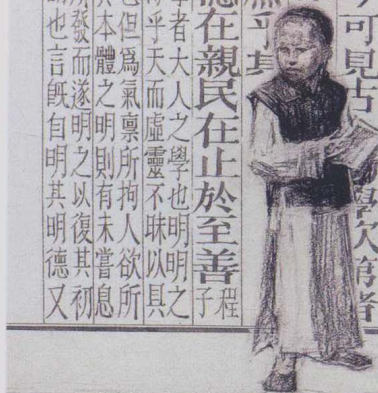 可見古學次第者
乎其
德在親民在止於至善
程
子
者大人之學也明明之
得乎天而虛靈不昧以具
也但爲氣稟所拘人欲所
其本體之明則有未嘗息
所發而遂明之以復其初
也言旣自明其明德又